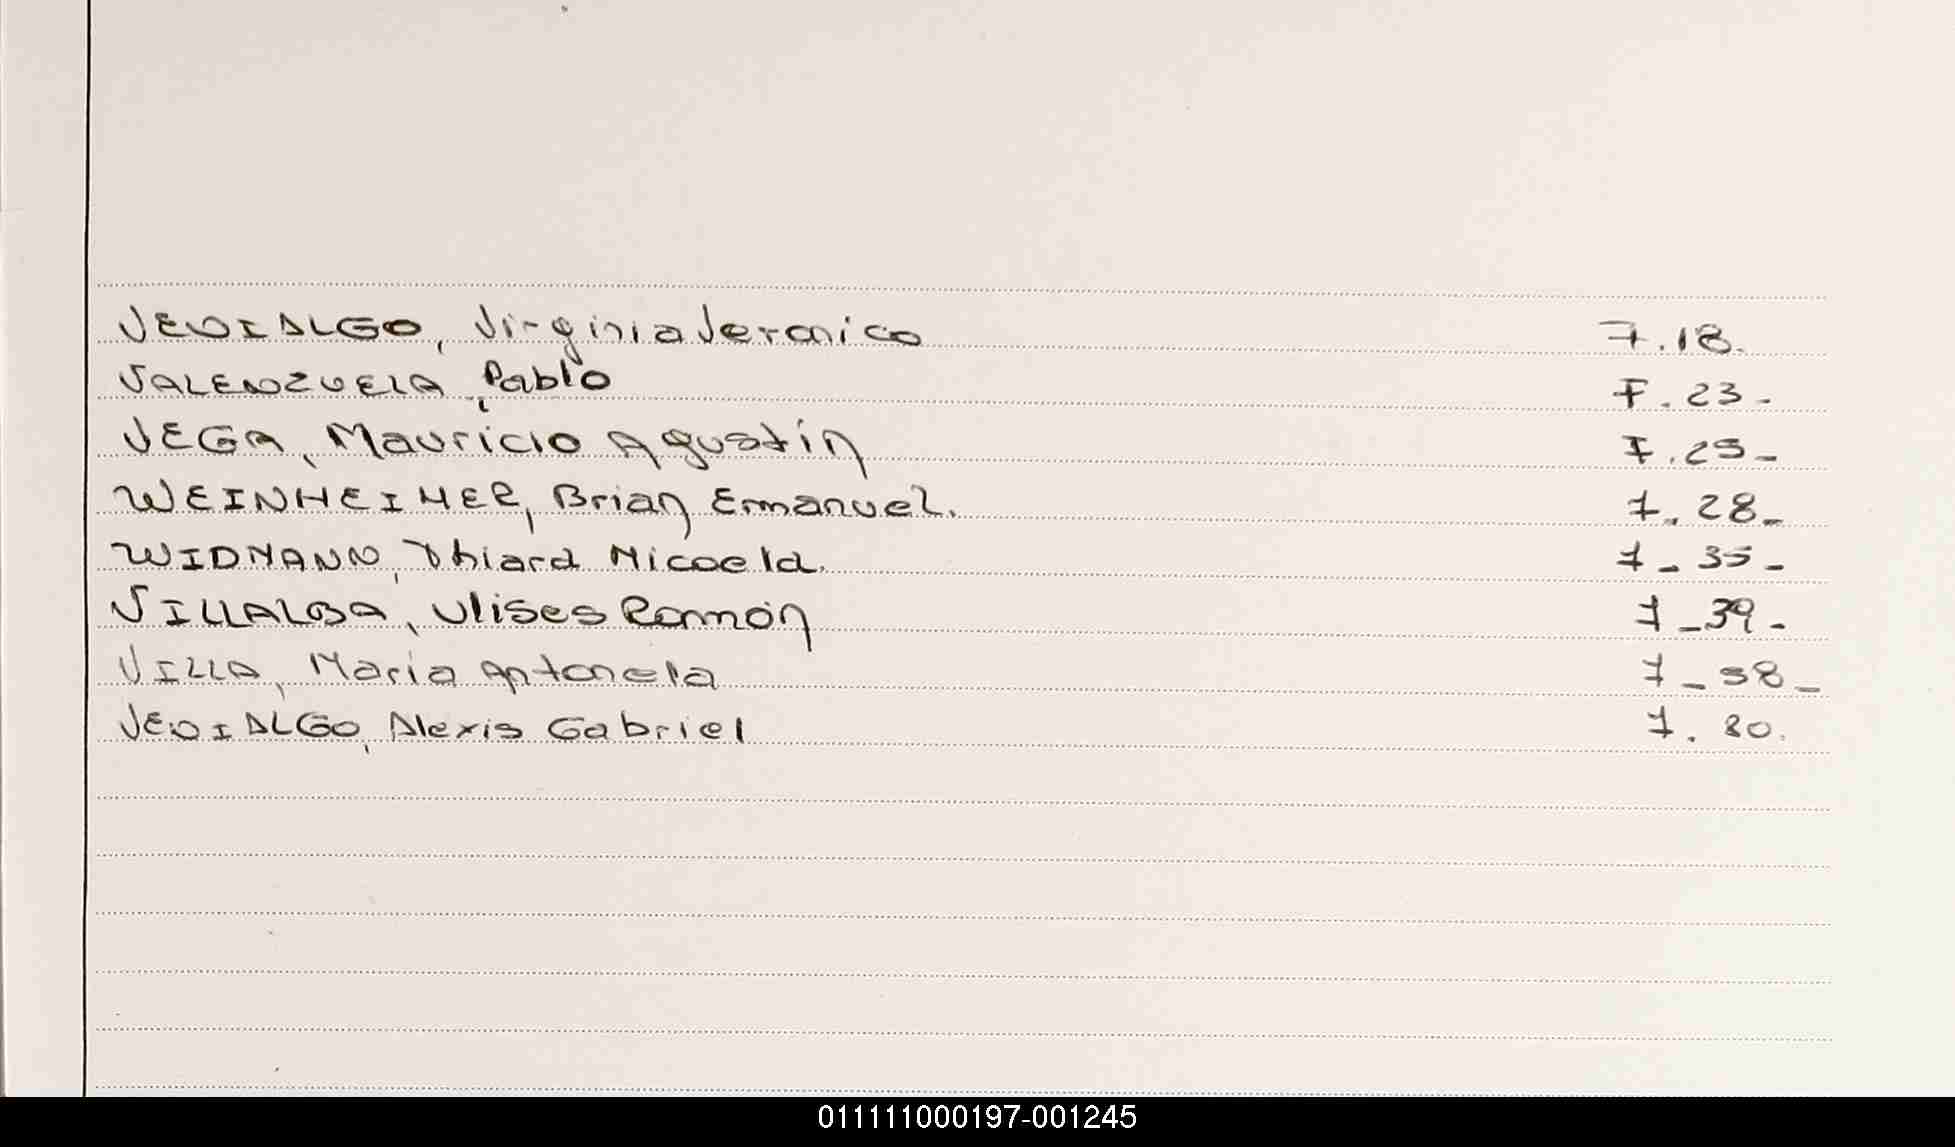 VEDIALGO, Virginia Veronica 7.18.
VALENZUELA, Pablo 7.23-
VEGA, Mauricio Agustín 7.25-
WEINHEIMER, Brian Emanuel. 7.28-
WIDMANN, Dhiara Micaela. 7-35-
VILLALBA, Ulises Ramón 7-39-
VILLA, María Antonela 7-58-
VEDIALGO, Alexis Gabriel 7.80.
011111000197-001245